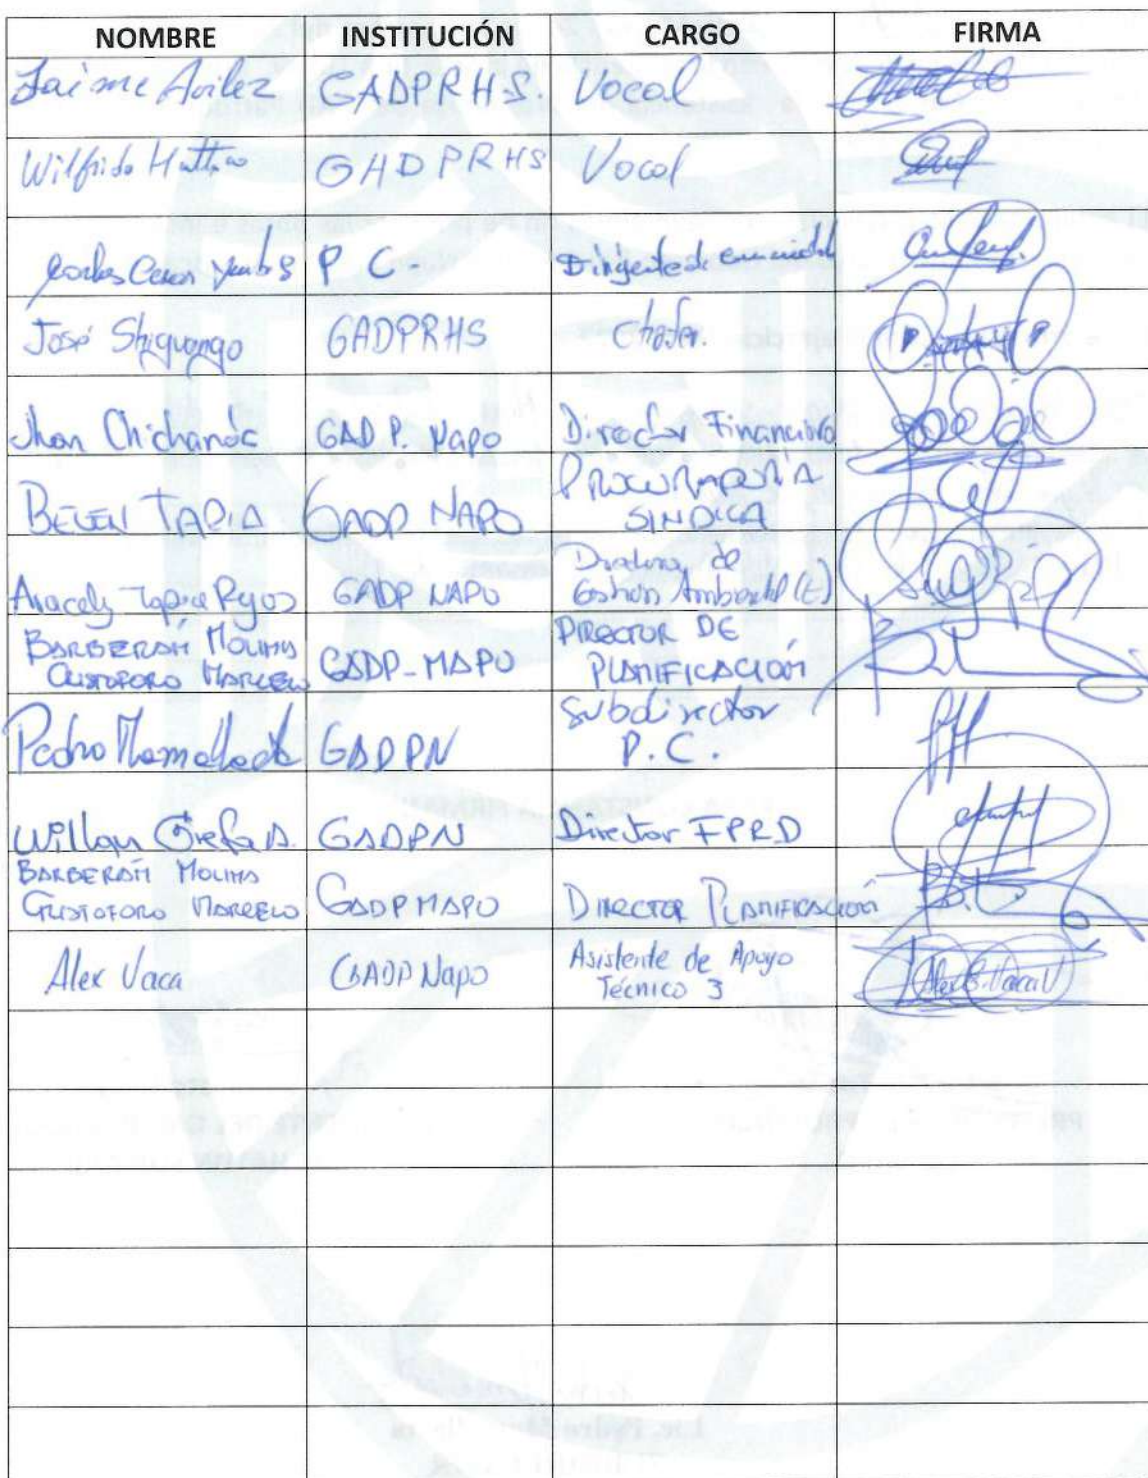 NOMBRE INSTITUCIÓN CARGO FIRMA
Jaime Avilez GADPRHS. Vocal
Wilfrido GADPRHS Vocal
Carlos Cesar P C. Dirigente de
José Shiguango GADPRHS Chofer.
Jhon GAD P. Napo Director Financiero
BELEN TAPIA GADP NAPO PROCURADORIA
SINDICA
Aracely Tapia GADP NAPO Directora de
Gestión Ambiental (E)
BARBERÁN MOLINA GADP-NAPO DIRECTOR DE
CRISTOFORO MARCELO PLANIFICACIÓN
Pedro GADPN Subdirector
P.C.
Willan Grefa A. GADPN Director FPRD
BARBERÁN MOLINA
CRISTOFORO MARCELO GADP NAPO DIRECTOR PLANIFICACIÓN
Alex Vaca GADP Napo Asistente de Apoyo
Técnico 3
Alex S. Vaca V